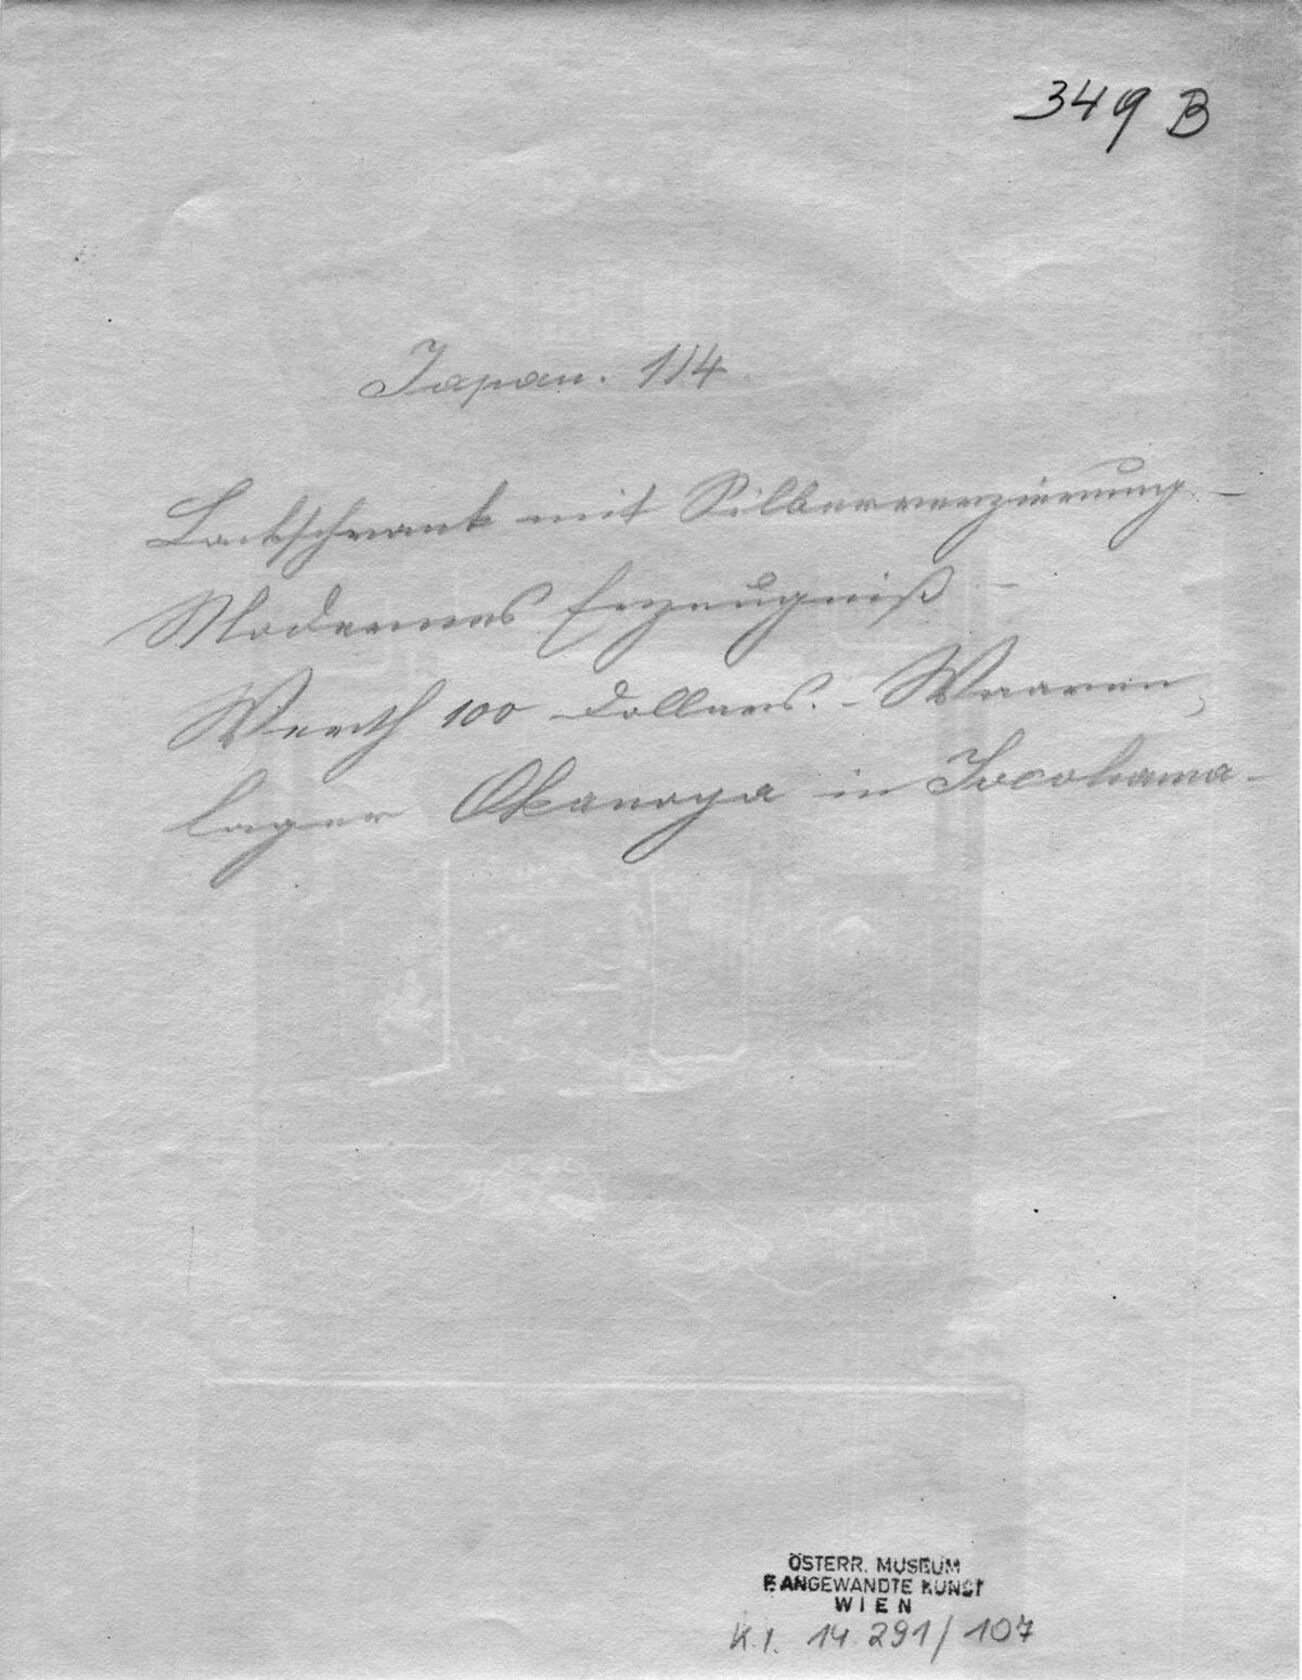 349 B
Japan. 114.
Lackschrank mit Silberverzierung –
Modernes Erzeugniß –
Werth 100 Dollars. – Waaren,
lager Okanoya in Jocohama –
ÖSTERR. MUSEUM
F. ANGEWANDTE KUNST
WIEN
K.I. 14.291/107